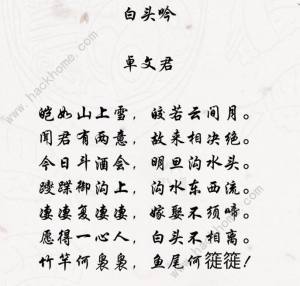 白头吟
卓文君
皑如山上雪，皎若云间月。
闻君有两意，故来相决绝。
今日斗酒会，明旦沟水头。
躞蹀御沟上，沟水东西流。
凄凄复凄凄，嫁娶不须啼。
愿得一心人，白头不相离。
竹竿何袅袅，鱼尾何簁簁！
www.hackhome.com